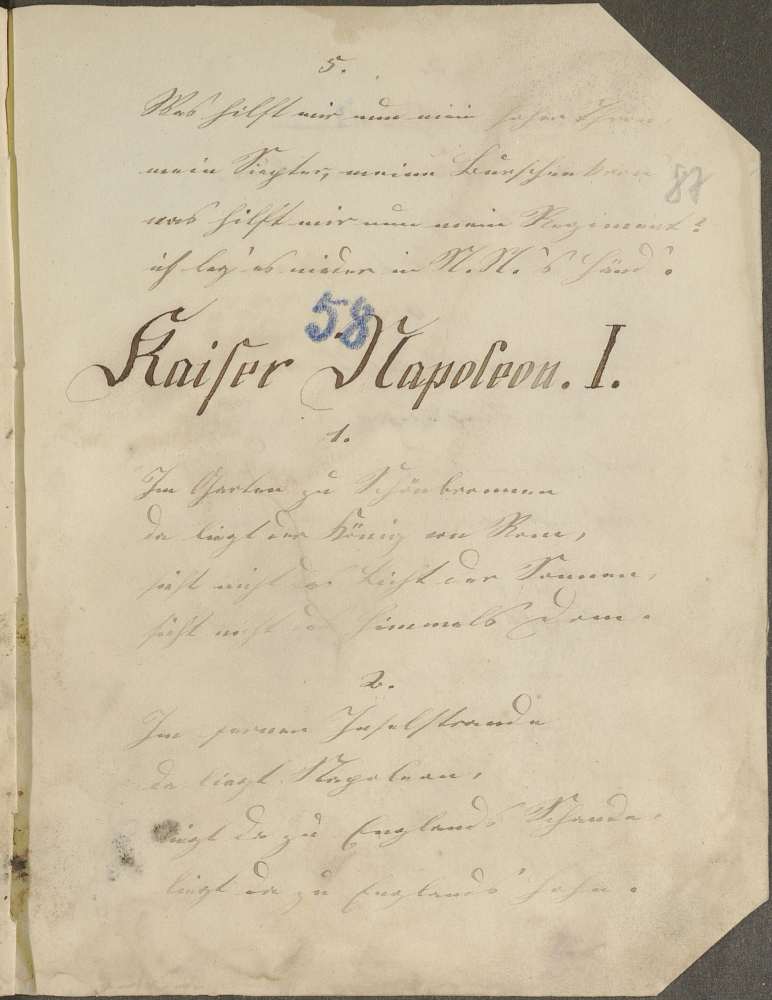 5.
Was hilft mir nun mein hoher Thron,
mein Siepter, meine Burschenkron
87
was hilft mir nun mein Regiment?
ich leg' es nieder in N. N.'s Händ'.
58
Kaiser Napoleon. I.
1.
Im Garten zu Schönbronnen
da liegt der König von Rom,
sieht nicht das Licht der Sonnen,
sieht nicht des Himmels Dom.
2.
Im fernen Inselstrande
da liegt Napoleon,
liegt da zu Englands Schande,
liegt da zu Englands' Hohn.